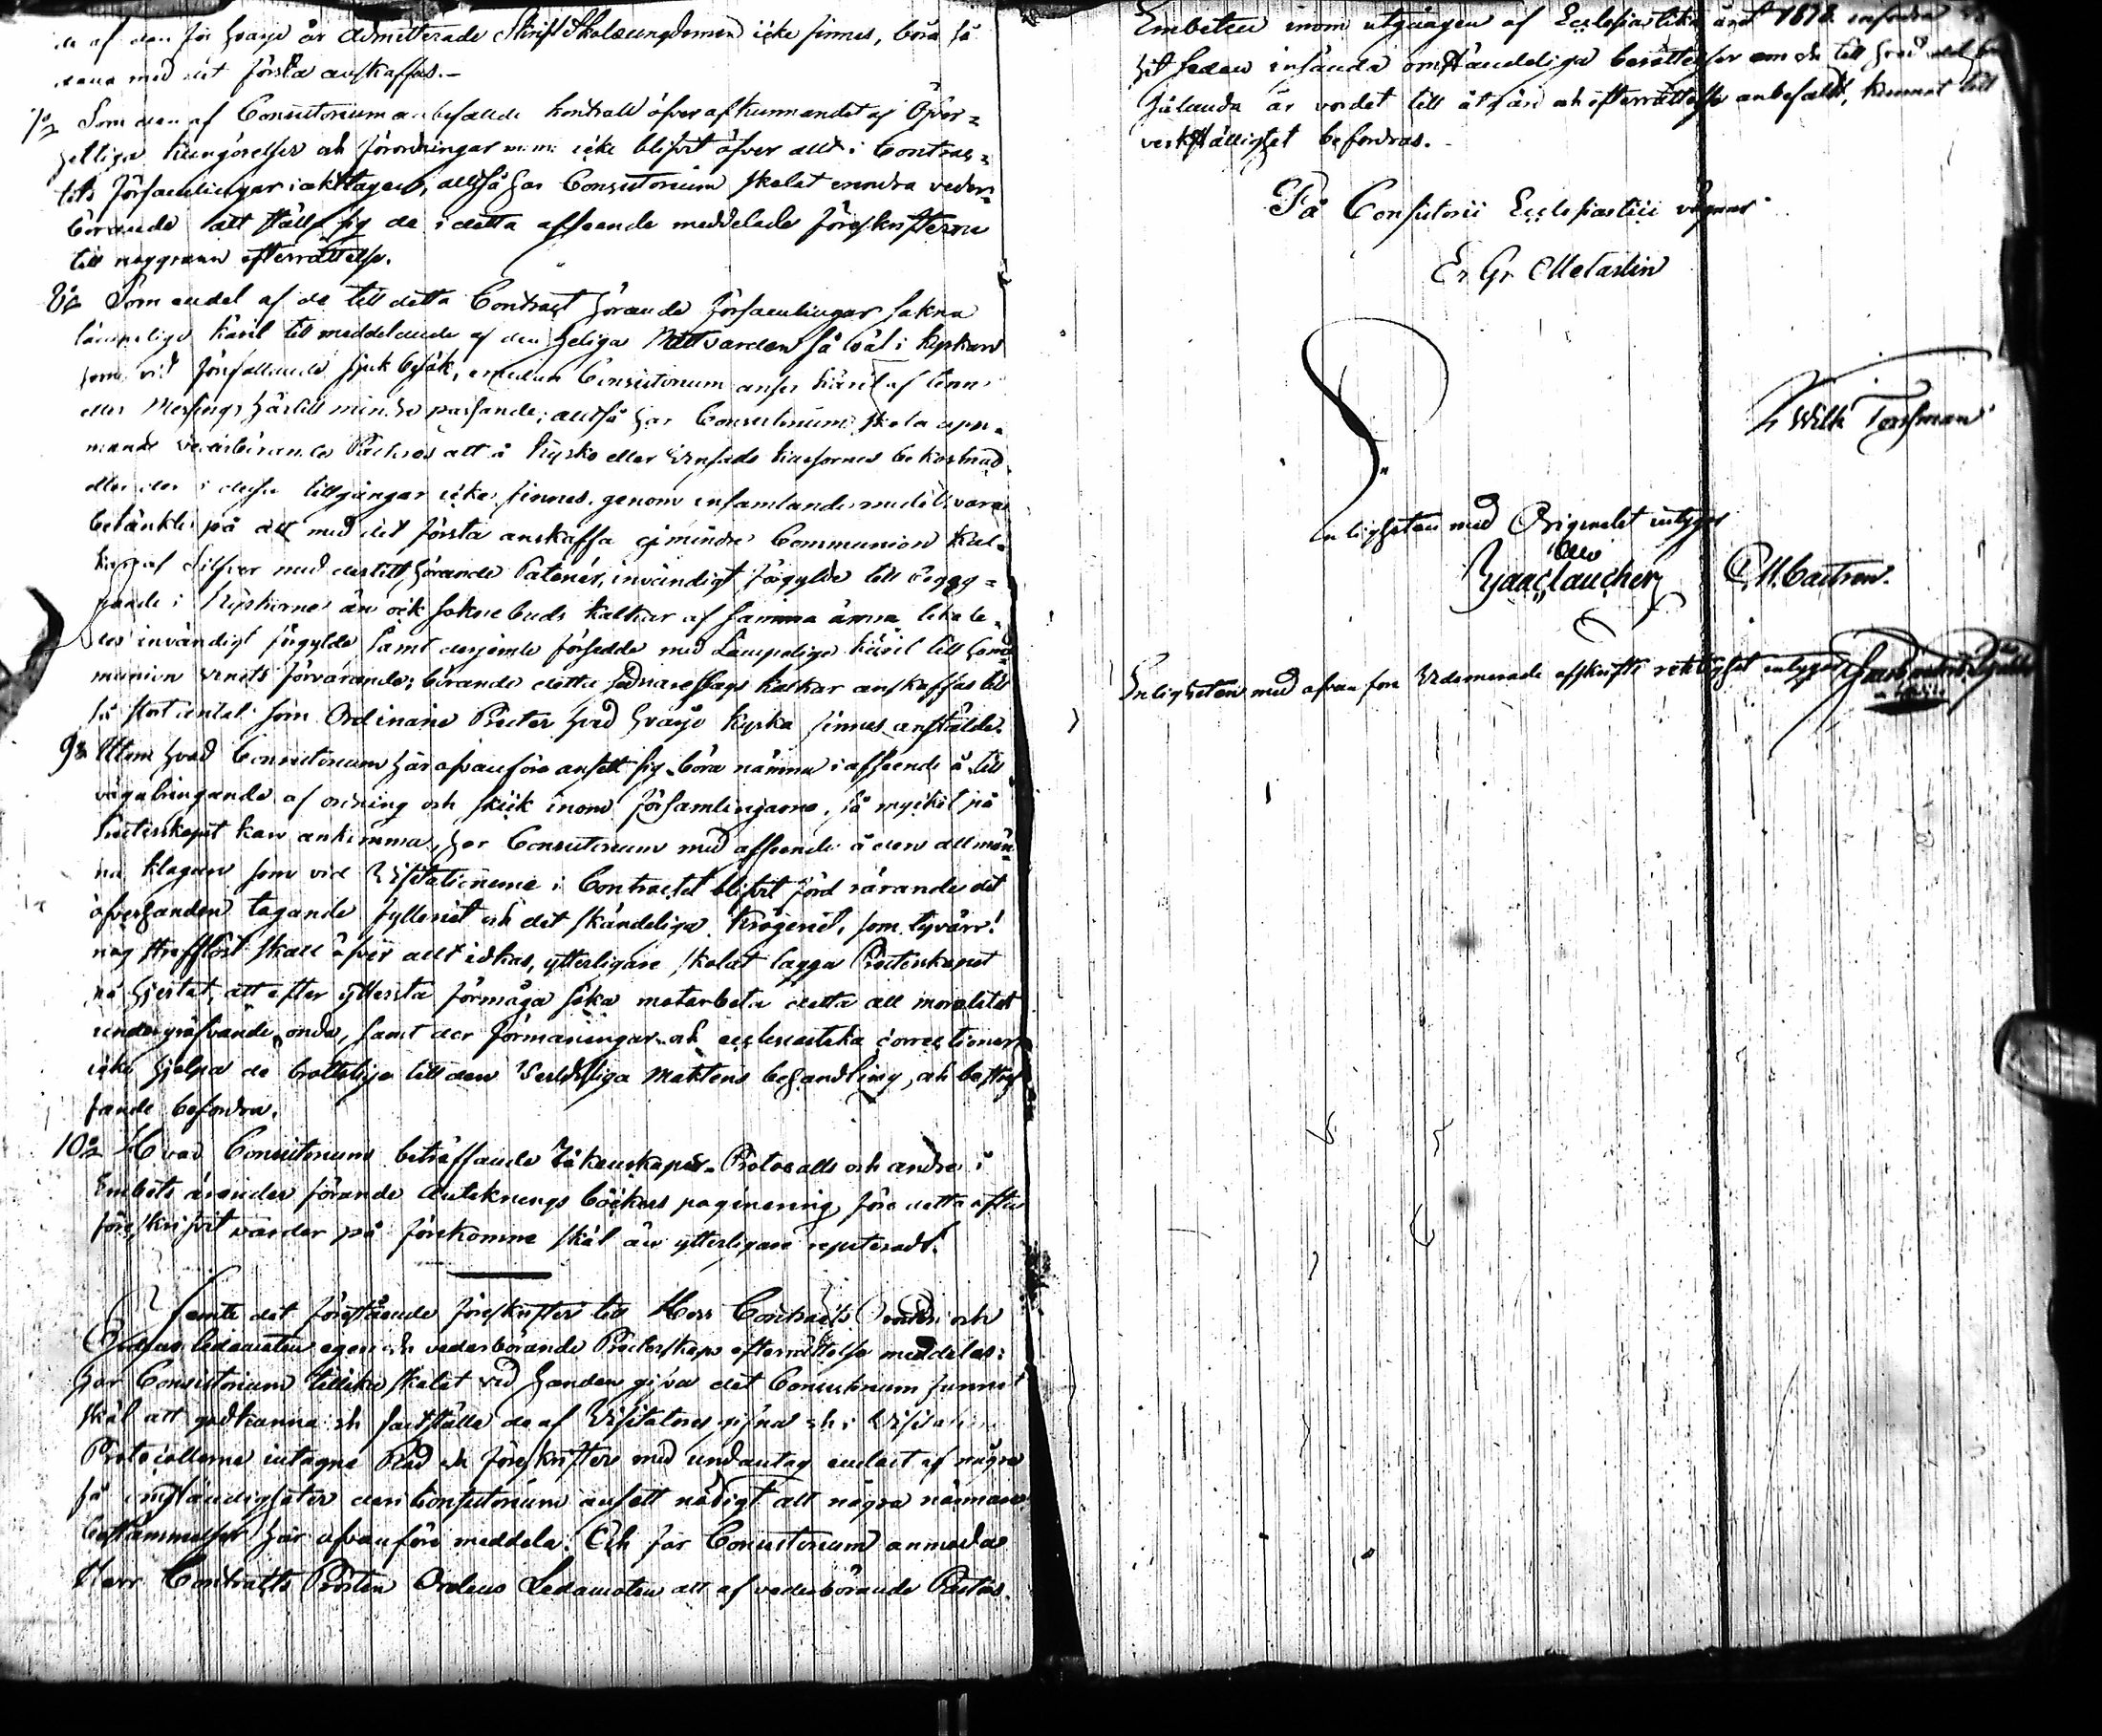 af den för hvarje år admitterade Skriftskoleungdomen icke finnes, böra så
dana med det första anskaffas.
7:o Som den af Consistorium anbefallde kontroll öfver afkunnandet af Öfver=
hetliga kungörelser och förordningar m.m. icke blifvit öfver allt i Contrac=
tets församlingar iakttagen; alltså har Consistorium skolat erindra veder=
börande att ställa sig de i detta afseende meddelade föreskrifterne
till noggrann efterrättelse.
8:o Som en del af de till detta Contract hörande församlingar sakna
lämpelige käril till meddelande af den heliga Nattvarden så väl i kyrkan
som vid förefallande sjuk besök, emedan Consistorium anser käril af tenn
eller Messing härtill mindre passande; alltså har Consistorium skolat upp=
mana vederbörande Pastores att å kyrko eller Vinsäds kassornes bekostnad
eller der i dessa tillgångar icke finnes, genom insamlande medel, vara
betänkte på att med det första anskaffa ej mindre Communion kal=
kar af silfver med dertill hörande Patener, invändigt förgylde till begag=
nande i kyrkorne än ock sockne buds kalkar af samma ämne likale=
des invändigt förgylde samt derjemte försedde med lämpelige käril till Com=
munion vinets förvarande; börande detta sednare slags kalkar anskaffas till
så stort antal som Ordinarie Prester hvad hvarje kyrka finnes anstälde.
9:o Utom hvad Consistorium här ofvanföre ansett sig böra nämna i afseende å till
vägabringande af ordning och skick inom församlingarne, så mycket på
Presterskapet kan ankomma, har Consistorium med afseende å den allmän=
na klagan som vid Visitationerne i Contractet blifvit förd rörande det
öfverhanden tagande fylleriet och det skändeliga krögeriet, som tyvärr!
nog strafflöst skall öfver allt idkas, ytterligare skolat lägga Presterskapet
på hjertat, att efter yttersta förmåga söka motarbeta detta all moralitet
undergräfvande onda, samt der förmaningar och ecclesiastika correctioner
icke hjelpa de brottslige till den Verldsliga Maktens behandling, och bestraf
fande befordra.
10:o Hvad Consistorium beträffande Räkenskaps- Protocolls och andre i
Embets ärender förande Anteknings böckers paginering före detta ofta
föreskrifvit varder på förekomne skäl än ytterligare repeteradt.
Jemte det förestående föreskrifter till Herr Contracts Prosten och
Ordens ledamoten egen och vederbörande Presterskaps efterrättelse meddelas;
har Consistorium tillika skolat vid handen gifva det Consistorium funnit
skäl att godkänna och fastställa de af Visitator gifna och i Visitations
Protocollerne intagne Råd och föreskrifter med undantag endast af några
få omständigheter deri Consistorium ansett nödigt att några närmare
bestämmelser här ofvanföre meddela. Och får Consistorium anmoda
Herr Contracts Prosten Ordens Ledamoten att af vederbörande Pastors
Embeten inom utgången af Ecclesiastika året 1818 infordra
hit sedan insända omständeliga berättelser om de till hvad
sålunda är vordet till åtgärd och efterrättelse anbefaldt, kunnat till
verkställighet befordras.
På Consistorii Ecclesiastici vägnar
Er. Gr. Melartin
Wilh Forsman
Enligheten med Originalet intyga
C. M. Castren.
Enligheten med ofvan före Vidimerade afskrifts riktighet intygar